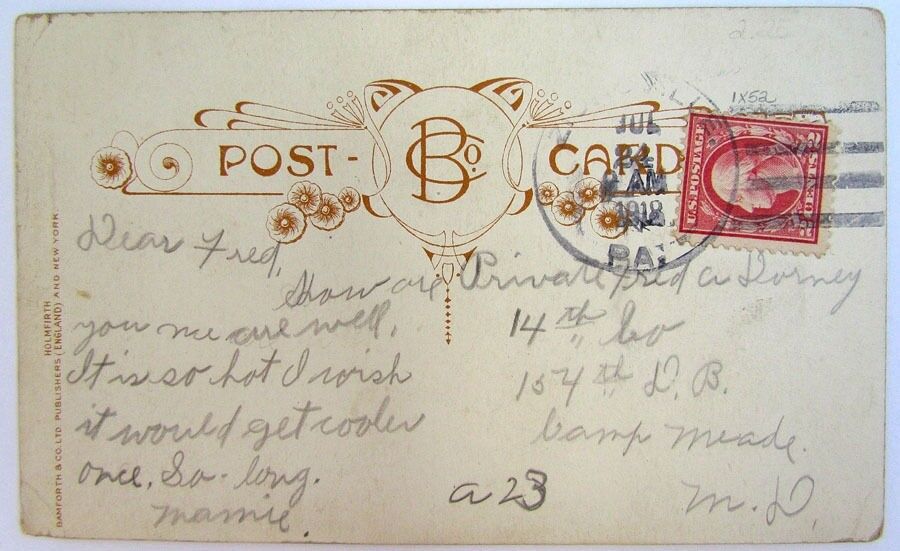 POST- BCo. CARD
1X52
JUL
24
AM
1918
PA.
U.S. POSTAGE
2 CENTS 2
HOLMFIRTH
BAMFORTH & CO. LTD PUBLISHERS (ENGLAND) AND NEW YORK
Dear Fred,
How are
you me are well,
It is so hot I wish
it would get cooler
once. So-long.
Mamie.
Private Fred a Dorney
14th Co
154th D. B.
Camp Meade.
M. D.
a 23